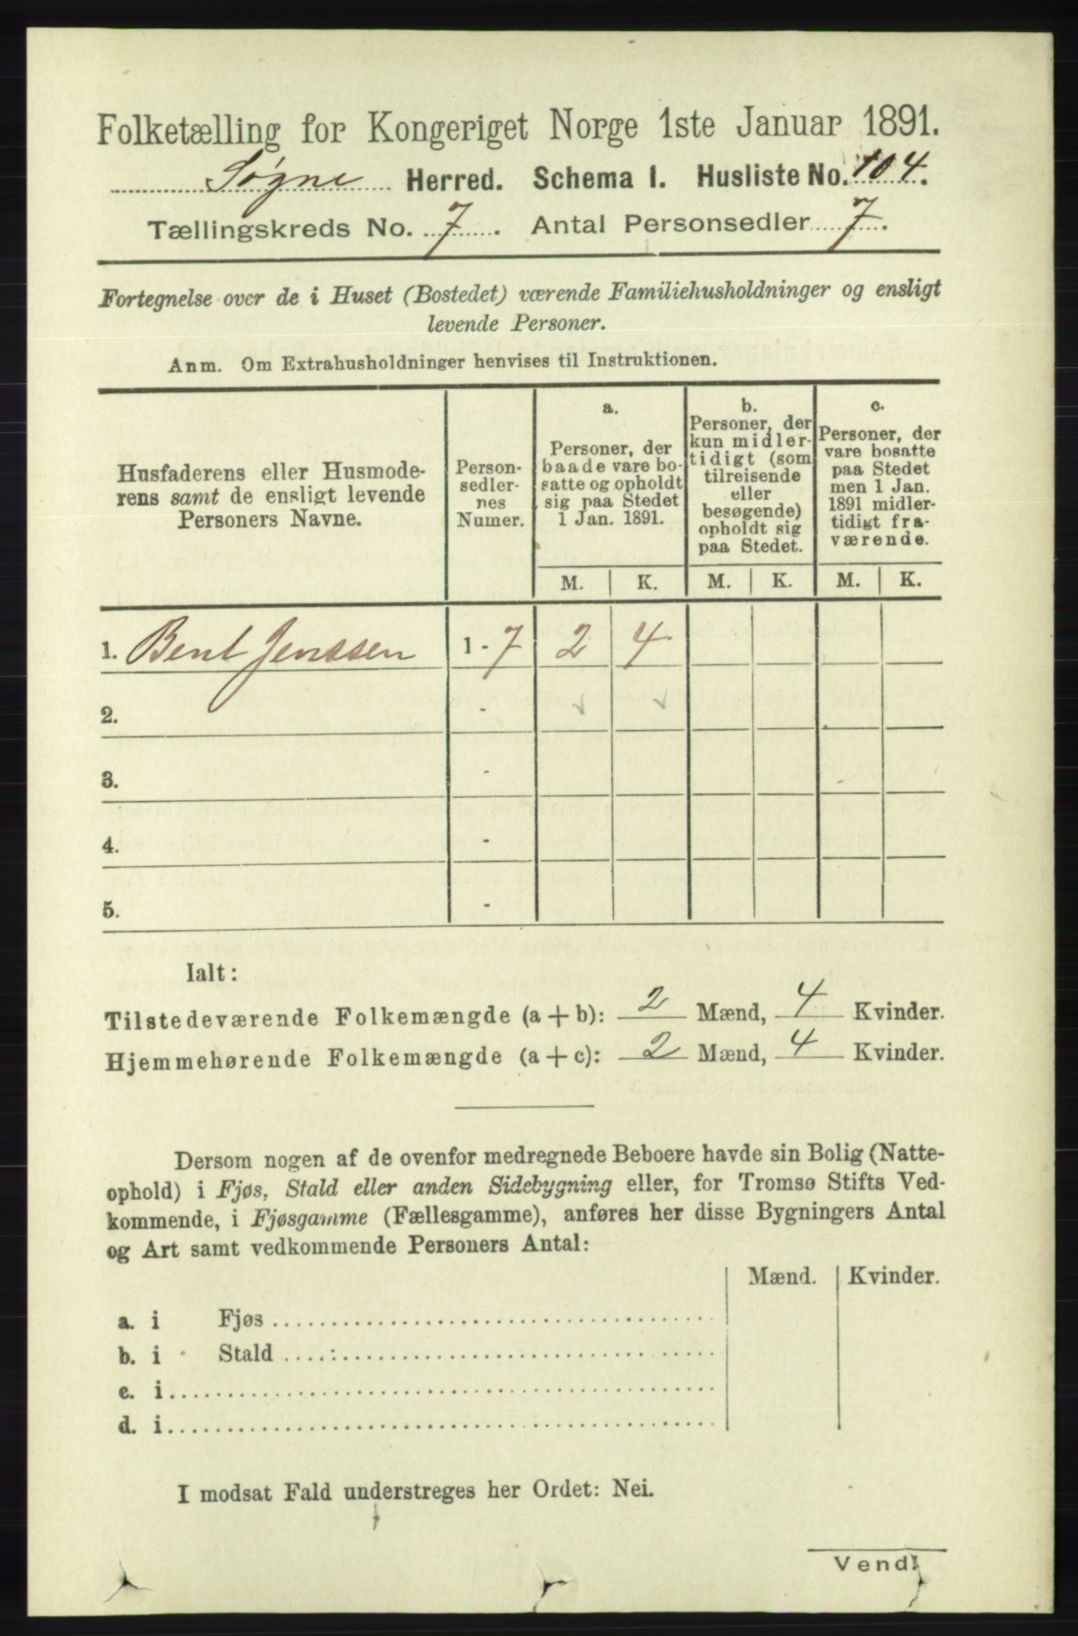 Folketælling for Kongeriget Norge 1ste Januar 1891.
Søgne Herred. Schema 1. Husliste No. 104.
Tællingskreds No. 7. Antal Personsedler 7.
Fortegnelse over de i Huset (Bostedet) værende Familiehusholdninger og ensligt
levende Personer.
Anm. Om Extrahusholdninger henvises til Instruktionen.
Husfaderens eller Husmode-
rens samt de ensligt levende
Personers Navne.
Person-
sedler-
nes
Numer.
a.
Personer, der
baade vare bo-
satte og opholdt
sig paa Stedet
1 Jan. 1891.
b.
Personer, der
kun midler-
tidigt (som
tilreisende
eller
besøgende)
opholdt sig
paa Stedet.
c.
Personer, der
vare bosatte
paa Stedet
men 1 Jan.
1891 midler-
tidigt fra-
værende.
M. K. M. K. M. K.
1. Bent Jenssen 1 - 7 2 4
2. -
3. -
4. -
5. -
Ialt:
Tilstedeværende Folkemængde (a + b): 2 Mænd, 4 Kvinder.
Hjemmehørende Folkemængde (a + c): 2 Mænd, 4 Kvinder.
Dersom nogen af de ovenfor medregnede Beboere havde sin Bolig (Natte-
ophold) i Fjøs, Stald eller anden Sidebygning eller, for Tromsø Stifts Ved-
kommende, i Fjøsgamme (Fællesgamme), anføres her disse Bygningers Antal
og Art samt vedkommende Personers Antal:
Mænd. Kvinder.
a. i Fjøs
b. i Stald
c. i
d. i
I modsat Fald understreges her Ordet: Nei.
Vend!